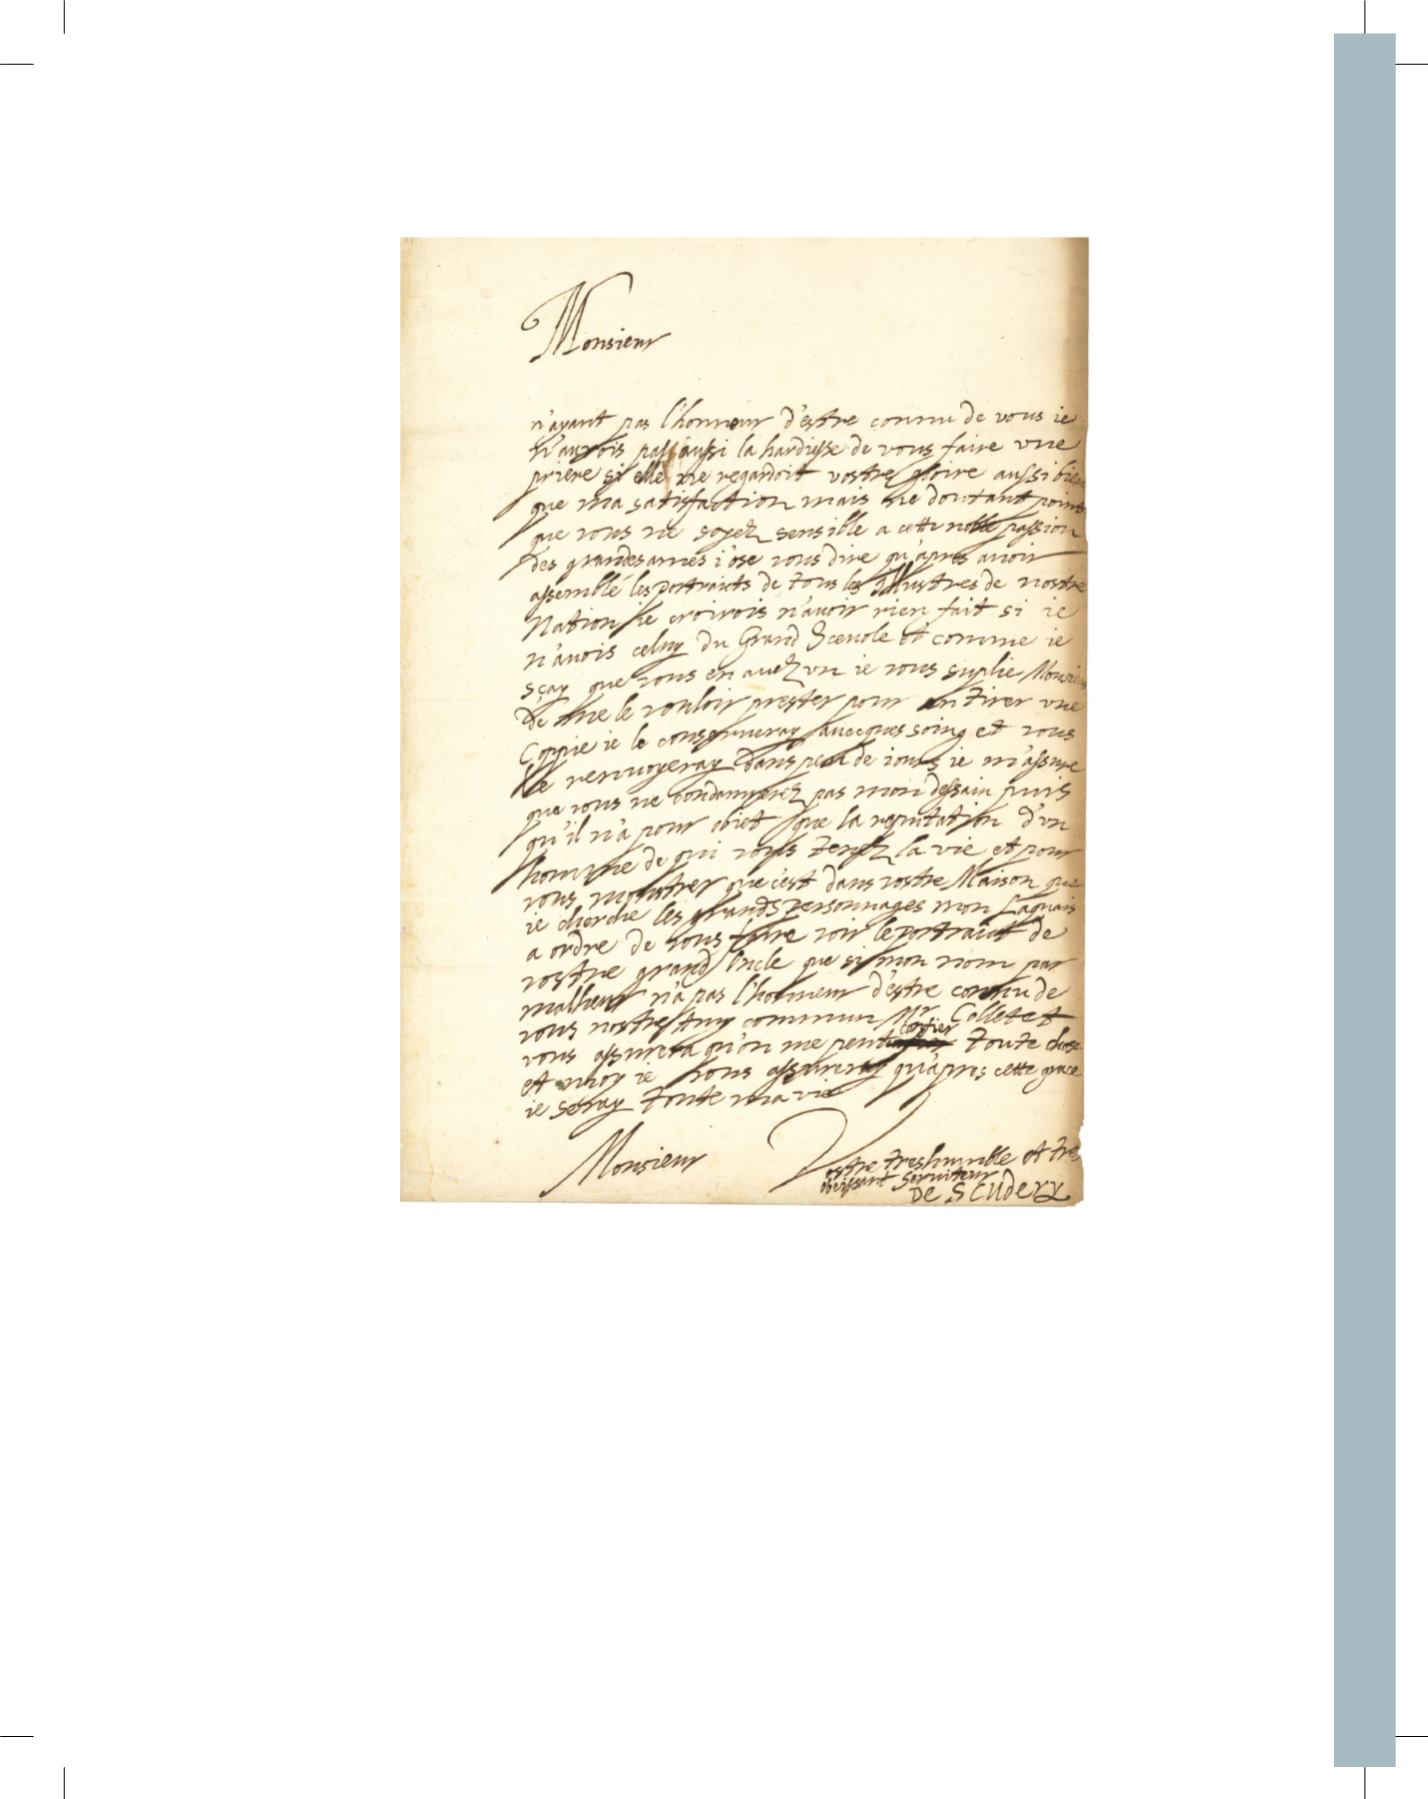 Monsieur
n'ayant pas l'honneur d'estre connu de vous ie
n'aurois pas aussi la hardiesse de vous faire vne
priere si elle ne regardoit vostre gloire aussi bien
que ma satisfaction mais ne doutant point
que vous ne soyez sensible a cette noble passion
des grandes ames i'ose vous dire qu'apres auoir
assemblé les portraicts de tous les Illustres de nostre
Nation ie croirois n'auoir rien fait si ie
n'auois celuy du Grand Sceuole et comme ie
sçay que vous en auez vn ie vous suplie Monsieur
de me le vouloir prester pour en tirer vne
Coppie ie le conserueray auecques soing et vous
le renuoyeray dans peu de iours ie m'assure
que vous ne condamnerez pas mon dessain puis
qu'il n'a pour obiet que la reputation d'vn
homme de qui vous tenez la vie et pour
vous monstrer que c'est dans vostre Maison que
ie cherche les grands personnages mon Laquais
a ordre de vous faire voir le portraict de
vostre grand Oncle que si mon nom par
malheur n'a pas l'honneur d'estre connu de
vous nostre Amy commun Mr Colletet
vous assurera qu'on me peut confier toute chose
et moy ie vous assureray qu'apres cette grace
ie seray toute ma vie
Monsieur
Vostre tres humble et tres
obeissant Seruiteur
DE SCUDERY